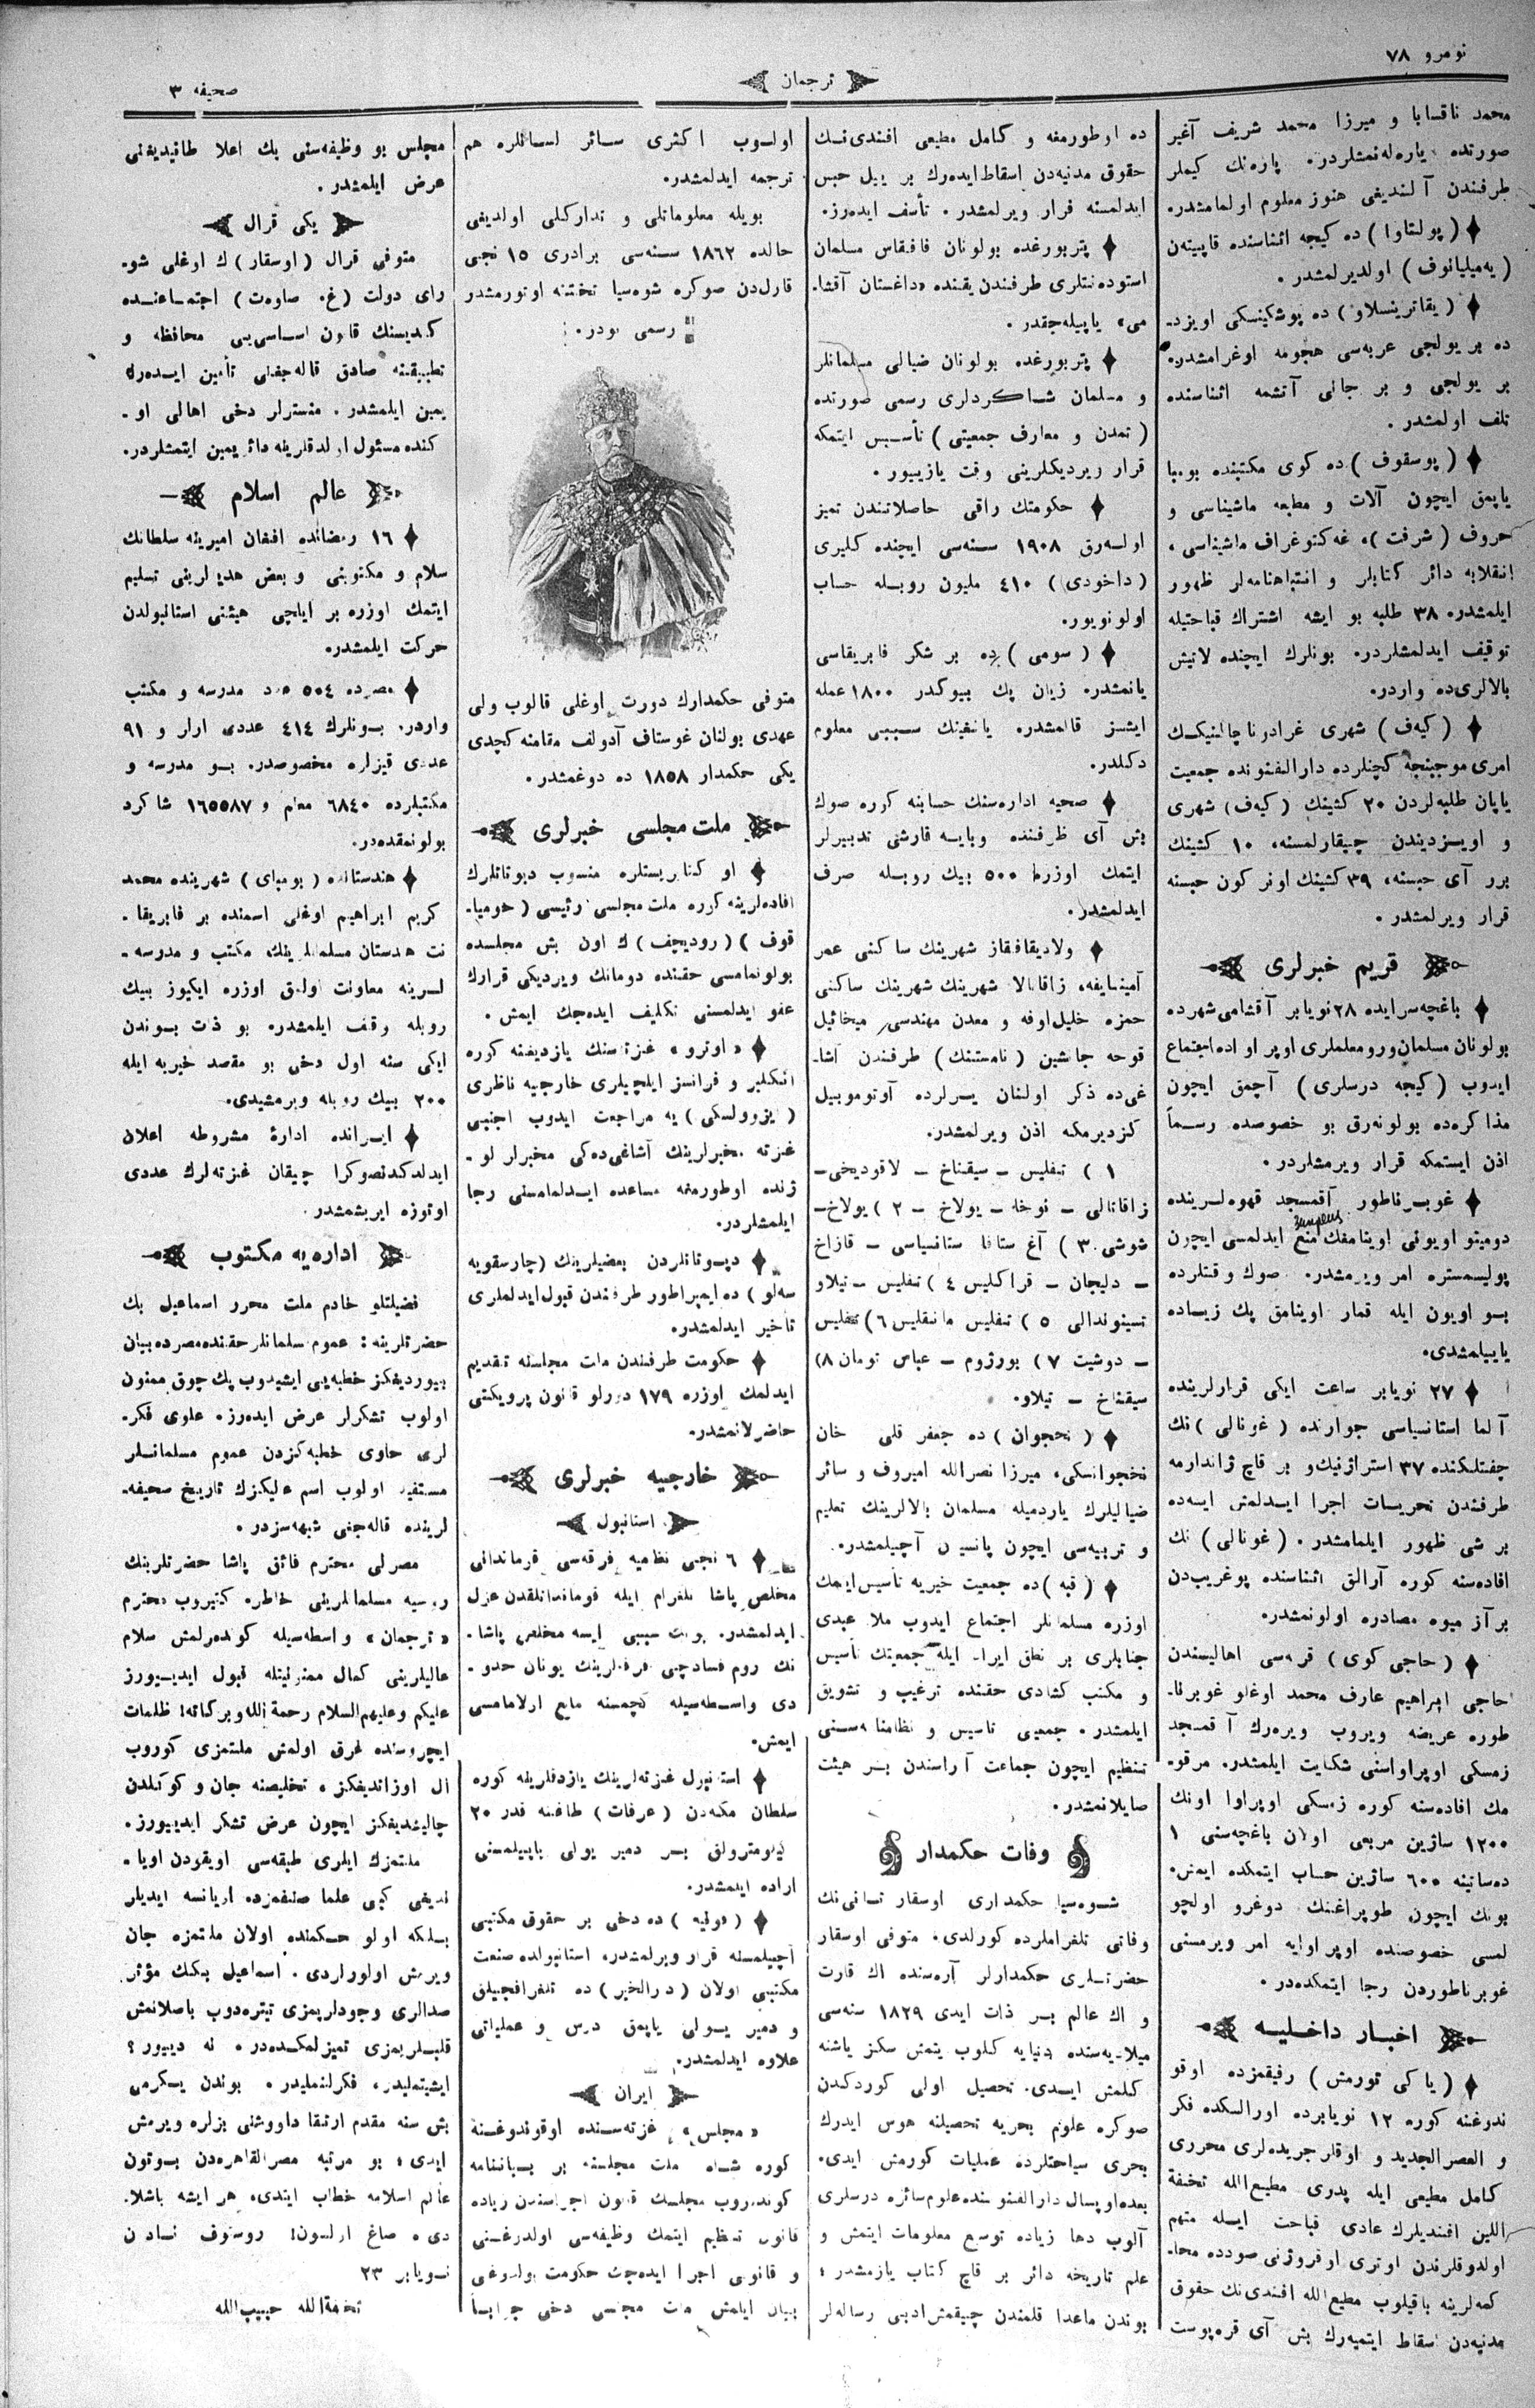 نومرو ٧٨
ترجمان
صحیفه ٣
محمد ناقسابا و میرزا محمد شریف آغیر
صورتده یاره‌له‌نمشلردر. پاره‌نك كیملر
طرفندن آلندیغی هنوز معلوم اولمامشدر.
( پولتاوا ) ده كیجه اثناسنده قاپیته‌ن
( یه‌میلیانوف ) اولدیرلمشدر.
( یقاترینسلاو ) ده پوشكینسكی اویزد-
ده بر یولجی عربه‌سی هجومه اوغرامشدر.
بر یولجی و بر جانی آتشمه اثناسنده
تلف اولمشدر.
( پوسقوف ) ده كوی مكتبنده بومبا
یاپمق ایچون آلات و مطبعه ماشیناسی و
حروف ( شرفت )، غه‌كتوغراف ماشیناسی،
انقلابه دائر كتابلر و انتباهنامه‌لر ظهور
ایلمشدر. ٣٨ طلبه بو ایشه اشتراك قباحتیله
توقیف ایدلمشلردر. بونلرك ایچنده لاتیش
بالالری‌ده واردر.
( كیه‌ف ) شهری غرادوناچالنیكـك
امری موجبنجه كچنلرده دارالفنونده جمعیت
یاپان طلبه‌لردن ٢٠ كشینك ( كیه‌ف ) شهری
و اویزدیندن چیقارلمسنه، ١٠ كشینك
برر آی حبسنه، ٣٩ كشینك اونر كون حبسنه
قرار ویرلمشدر.
قریم خبرلری
باغچه‌سرایده ٢٨ نویابر آقشامی شهرده
بولونان مسلمان و روس معلملری اوپراواده اجتماع
ایدوب ( كیجه درسلری ) آچمق ایچون
مذاكره‌ده بولونه‌رق بو خصوصده رسماً
اذن ایستمكه قرار ویرمشلردر.
غوبرناطور آقمسجد قهوه‌لرینده
دومینو اویونی اوینامقك منع ایدلمسی ایچون
پولیسمستره امر ویرمشدر. صوك وقتلرده
بو اویون ایله قمار اوینامق پك زیاده
یاییلمشدی.
٢٧ نویابر ساعت ایكی قرارلرینده
آلما استانسیاسی جوارنده ( غونالی ) نك
چفتلكنده ٣٧ استراژنیك و بر قاچ ژاندارمه
طرفندن تحریات اجرا ایدلمش ایسه‌ده
بر شی ظهور ایلمامشدر. ( غونالی ) نك
افاده‌سنه كوره آرالق اثناسنده پوغریب‌دن
بر آز میوه مصادره اولونمشدر.
( حاجی كوی ) قریه‌سی اهالیسندن
حاجی ابراهیم عارف محمد اوغلو غوبرنا-
طوره عریضه ویروب ویره‌رك آقمسجد
زمسكی اوپراواسنی شكایت ایلمشدر. مرقو-
مك افاده‌سنه كوره زمسكی اوپراوا اونك
١٢٠٠ ساژین مربعی اولان باغچه‌سنی ١
ده‌ساتینه ٦٠٠ ساژین حساب ایتمكده ایمش.
بونك ایچون طوپراغنك دوغرو اولچو
لمسی خصوصنده اوپراوایه امر ویرمسنی
غوبرناطوردن رجا ایتمكده‌در.
اخبار داخلیه
( یاكی تورمش ) رفیقمزده اوقو
ندوغنه كوره ١٢ نویابرده اورالسكده فكر
و العصر الجدید و اوقلر جریده‌لری محرری
كامل مطیعی ایله پدری مطیع‌الله تحفة
اللین افندیلرك عادی قباحت ایله متهم
اولدوقلرندن اوتری اوقروژنی صودده محا-
كمه‌لرینه باقیلوب مطیع‌الله افندی‌نك حقوق
مدنیه‌دن اسقاط ایتمیه‌رك بش آی قره‌پوست
ده اوطورمغه و كامل مطیعی افندی‌نـك
حقوق مدنیه‌دن اسقاط ایده‌رك بر ییل حبس
ایدلمسنه قرار ویرلمشدر. تأسف ایده‌رز.
پتربورغده بولونان قافقاس مسلمان
استوده‌نتلری طرفندن یقنده «داغستان آقشا-
می» یاپیله‌جقدر.
پتربورغده بولونان ضیالی مسلمانلر
و مسلمان شاكردلری رسمی صورتده
( تمدن و معارف جمعیتی ) تأسیس ایتمكه
قرار ویردیكلرینی وقت یازییور.
حكومتك راقی حاصلاتندن تمیز
اوله‌رق ١٩٠٨ سنه‌سی ایچنده كلیری
( داخودی ) ٤١٠ ملیون روبله حساب
اولونویور.
( سومی ) ده بر شكر فابریقاسی
یانمشدر. زیان پك بیوكدر ١٨٠٠ عمله
ایشسز قالمشدر. یانغینك سببی معلوم
دكلدر.
صحیه اداره‌سنك حسابنه كوره صوك
بش آی ظرفنده وبایه قارشی تدبیرلر
ایتمك اوزره ٥٠٠ بیك روبله صرف
ایدلمشدر.
ولادیقافقاز شهرینك ساكنی عمر
آمینایفه، زاقاتالا شهرینك شهرینك ساكنی
حمزه خلیل‌اوفه و معدن مهندسی میخائیل
قوجه جاشین ( نامستنك ) طرفندن اشا-
غی‌ده ذكر اولنان یرلرده آوتوموبیل
كزدیرمكه اذن ویرلمشدر.
١ ) تفلیس – سیقناخ – لاقودیخی–
زاقاتالی – نوخا – یولاخ – ٢ ) یولاخ–
شوشی ٣ ) آغ ستافا ستانسیاسی – قازاخ
– دلیجان – قراكلیس ٤ ) تفلیس – تیلاو
تسینوندالی ٥ ) تفلیس مانقلیس ٦ ) تفلیس
– دوشیت ٧ ) بورژوم – عباس تومان ٨)
سیقناخ – تیلاو.
( نخجوان ) ده جعفر قلی خان
نخجوانسكی، میرزا نصرالله امیروف و سائر
ضیالیلرك یاردمیله مسلمان بالالرینك تعلیم
و تربیه‌سی ایچون پانسیون آچیلمشدر.
( قبه ) ده جمعیت خیریه تأسیس ایتمك
اوزره مسلمانلر اجتماع ایدوب ملا عبدی
جنابلری بر نطق ایراد ایله جمعیتك تأسیس
و مكتب كشادی حقنده ترغیب و تشویق
ایلمشدر. جمعیتی تاسیس و نظامنامه‌سنی
تنظیم ایچون جماعت آراسندن بـر هیئت
صایلانمشدر.
وفات حكمدار
شوه‌سیا حكمداری اوسقار ثانی‌نك
وفاتی تلغراملرده كورلدی. متوفی اوسقار
حضرتلری حكمدارلر آره‌سنده اك قارت
و اك عالم بـر ذات ایدی ١٨٢٩ سنه‌سی
میلادیه‌سنده دنیایه كلوب یتمش سكز یاشنه
كلمش ایدی. تحصیل اولی كوردكدن
صوكره علوم بحریه تحصیلنه هوس ایدرك
بحری سیاحتلرده عملیات كورمش ایدی.
بعده اوپسال دارالفنوننده علوم سائره درسلری
آلوب دها زیاده توسیع معلومات ایتمش و
علم تاریخه دائر بر قاچ كتاب یازمشدر؛
بوندن ماعدا قلمندن چیقمش ادبی رساله‌لر
اولوب اكثری سائر لسانلره هم
ترجمه ایدلمشدر.
بویله معلوماتلی و تداركلی اولدیغی
حالده ١٨٦٢ سنه‌سی برادری ١٥ نجی
قارل‌دن صوكره شوه‌سیا تختنه اوتورمشدر
رسمی بودر.
متوفی حكمدارك دورت اوغلی قالوب ولی
عهدی بولنان غوستاف آدولف مقامنه كچدی
یكی حكمدار ١٨٥٨ ده دوغمشدر.
ملت مجلسی خبرلری
او كتابریستلره منسوب دپوتاتلرك
افاده‌لرینه كوره ملت مجلسی رئیسی ( خومیا-
قوف ) ( رودیچف ) ك اون بش مجلسده
بولونمامسی حقنده دومانك ویردیكی قرارك
عفو ایدلمسنی تكلیف ایده‌جك ایمش.
« اوترو » غزته‌سنك یازدیغنه كوره
انكلیز و فرانسز ایلچیلری خارجیه ناظری
( ایزوولسكی ) یه مراجعت ایدوب اجنبی
غزته مخبرلرینك آشاغی‌ده‌كی مخبرلر لو-
ژنده اوطورمغه مساعده ایدلمامسنی رجا
ایلمشلردر.
دپوتاتلردن بعضیلرینك (چارسقویه
سه‌لو ) ده ایمپراطور طرفندن قبول ایدلملری
تأخیر ایدلمشدر.
حكومت طرفندن ملت مجلسنه تقدیم
ایدلمك اوزره ١٧٩ دورلو قانون پرویكتی
حاضرلانمشدر.
خارجیه خبرلری
استانبول
٦ نجی نظامیه فرقه‌سی قرماندانی
مخلص پاشا تلغرام ایله قومانداندلقدن عزل
ایدلمشدر. بونك سببی ایسه مخلص پاشا-
نك روم فسادچی فرقه‌لرینك یونان حدو-
دی واسطه‌سیله كچمسنه مانع اولامامسی
ایمش.
استانبول غزته‌لرینك یازدقلرینه كوره
سلطان مكه‌دن ( عرفات ) طاغنه قدر ٢٠
كیلومترولق بـر دمیر یولی یاپیلمسنی
اراده ایلمشدر.
( قونیه ) ده دخی بر حقوق مكتبی
آچیلمسنه قرار ویرلمشدر، استانبولده صنعت
مكتبی اولان ( درالخیر ) ده تلغرافجیلق
و دمیر یولی یاپمق درس و عملیاتی
علاوه ایدلمشدر.
ایران
« مجلس » غزته‌سنده اوقوندوغنة
كوره شاه ملت مجلسنه بر بیاننامه
كوندروب مجلسك قانون اجراسندن زیاده
قانون تنظیم ایتمك وظیفه‌سی اولدوغنی
و قانونی اجرا ایده‌جك حكومت بولدوغی
بیان ایلمش ملت مجلسی دخی جواباً
مجلس بو وظیفه‌سنی پك اعلا طانیدیغنی
عرض ایلمشدر.
یكی قرال
متوفی قرال ( اوسقار ) ك اوغلی شو-
رای دولت ( غ. صاوه‌ت ) اجتماعنده
كندیسنك قانون اساسی‌یی محافظه و
تطبیقنه صادق قاله‌جغنی تأمین ایده‌رك
یمین ایلمشدر. منسترلر دخی اهالی او-
كنده مسئول اولدقلرینه دائر یمین ایتمشلردر.
عالم اسلام
١٦ رمضانده افغان امیرینه سلطانك
سلام و مكتوبنی و بعض هدیه‌لرینی تسلیم
ایتمك اوزره بر ایلچی هیئتی استانبولدن
حركت ایلمشدر.
مصرده ٥٠٤ عدد مدرسه و مكتب
واردر. بونلرك ٤١٤ عددی ارلر و ٩١
عددی قیزلره مخصوصدر. بـو مدرسه و
مكتبلرده ٦٨٤٠ معلم و ١٦٥٥٨٧ شاكرد
بولونمقده‌در.
هندستانده ( بومبای ) شهرینده محمد
كریم ابراهیم اوغلی اسمنده بر فابریقا-
نت هندستان مسلمانلرینك مكتب و مدرسه-
لرینه معاونت اولمق اوزره ایكیوز بیك
روبله وقف ایلمشدر، بو ذات بوندن
ایكی سنه اول دخی بو مقصد خیریه ایله
٢٠٠ بیك روبله ویرمشیدی.
ایرانده ادارۀ مشروطه اعلان
ایدلدكدنصوكرا چیقان غزته‌لرك عددی
اوتوزه ایریشمشدر.
اداره‌یه مكتوب
فضیلتلو خادم ملت محرر اسماعیل بك
حضرتلرینه: عموم مسلمانلر حقنده مصرده بیان
بیوردیغكز خطبه‌یی ایشیدوب پك چوق ممنون
اولوب تشكرلر عرض ایده‌رز. علوی فكر-
لری حاوی خطبه‌كزدن عموم مسلمانلر
مستفید اولوب اسم عالیكزك تاریخ صحیفه-
لرینده قاله‌جنی شبهه‌سزدر.
مصرلی محترم فائق پاشا حضرتلرینك
روسیه مسلمانلرینی خاطره كتیروب محترم
« ترجمان » واسطه‌سیله كوندرلمش سلام
عالیلرینی كمال ممنونیتله قبول ایدییورز
علیكم وعلیهم‌السلام رحمة الله و بركاته! ظلمات
ایچروسنده غرق اولمش ملتمزی كوروب
ال اوزاندیغكز، تخلیصنه جان و كوكلدن
چالیشدیغكز ایچون عرض تشكر ایدییورز.
ملتمزك ایلری طبقه‌سی اویقودن اویا-
ندیغی كبی علما صنفمزده اریانسه ایدیلر
بلكه اولو حكمنده اولان ملتمزه جان
ویرمش اولورلردی. اسماعیل بكك مؤثر
صدالری وجودلریمزی تیتره‌دوب باصلانمش
قلبلریمزی تمیزلمكده‌در. نه دییور؟
ایشیتملیدر، فكرلنملیدر. بوندن یكرمی
بش سنه مقدم ارتقا داووشنی بزلره ویرمش
ایدی؛ بو مرتبه مصرالقاهره‌دن بوتون
عالم اسلامه خطاب ایتدی، هر ایشه باشلا-
دی، صاغ اولسون! روستوف نادون
نویابر ٢٣
تخفةالله حبیب‌الله